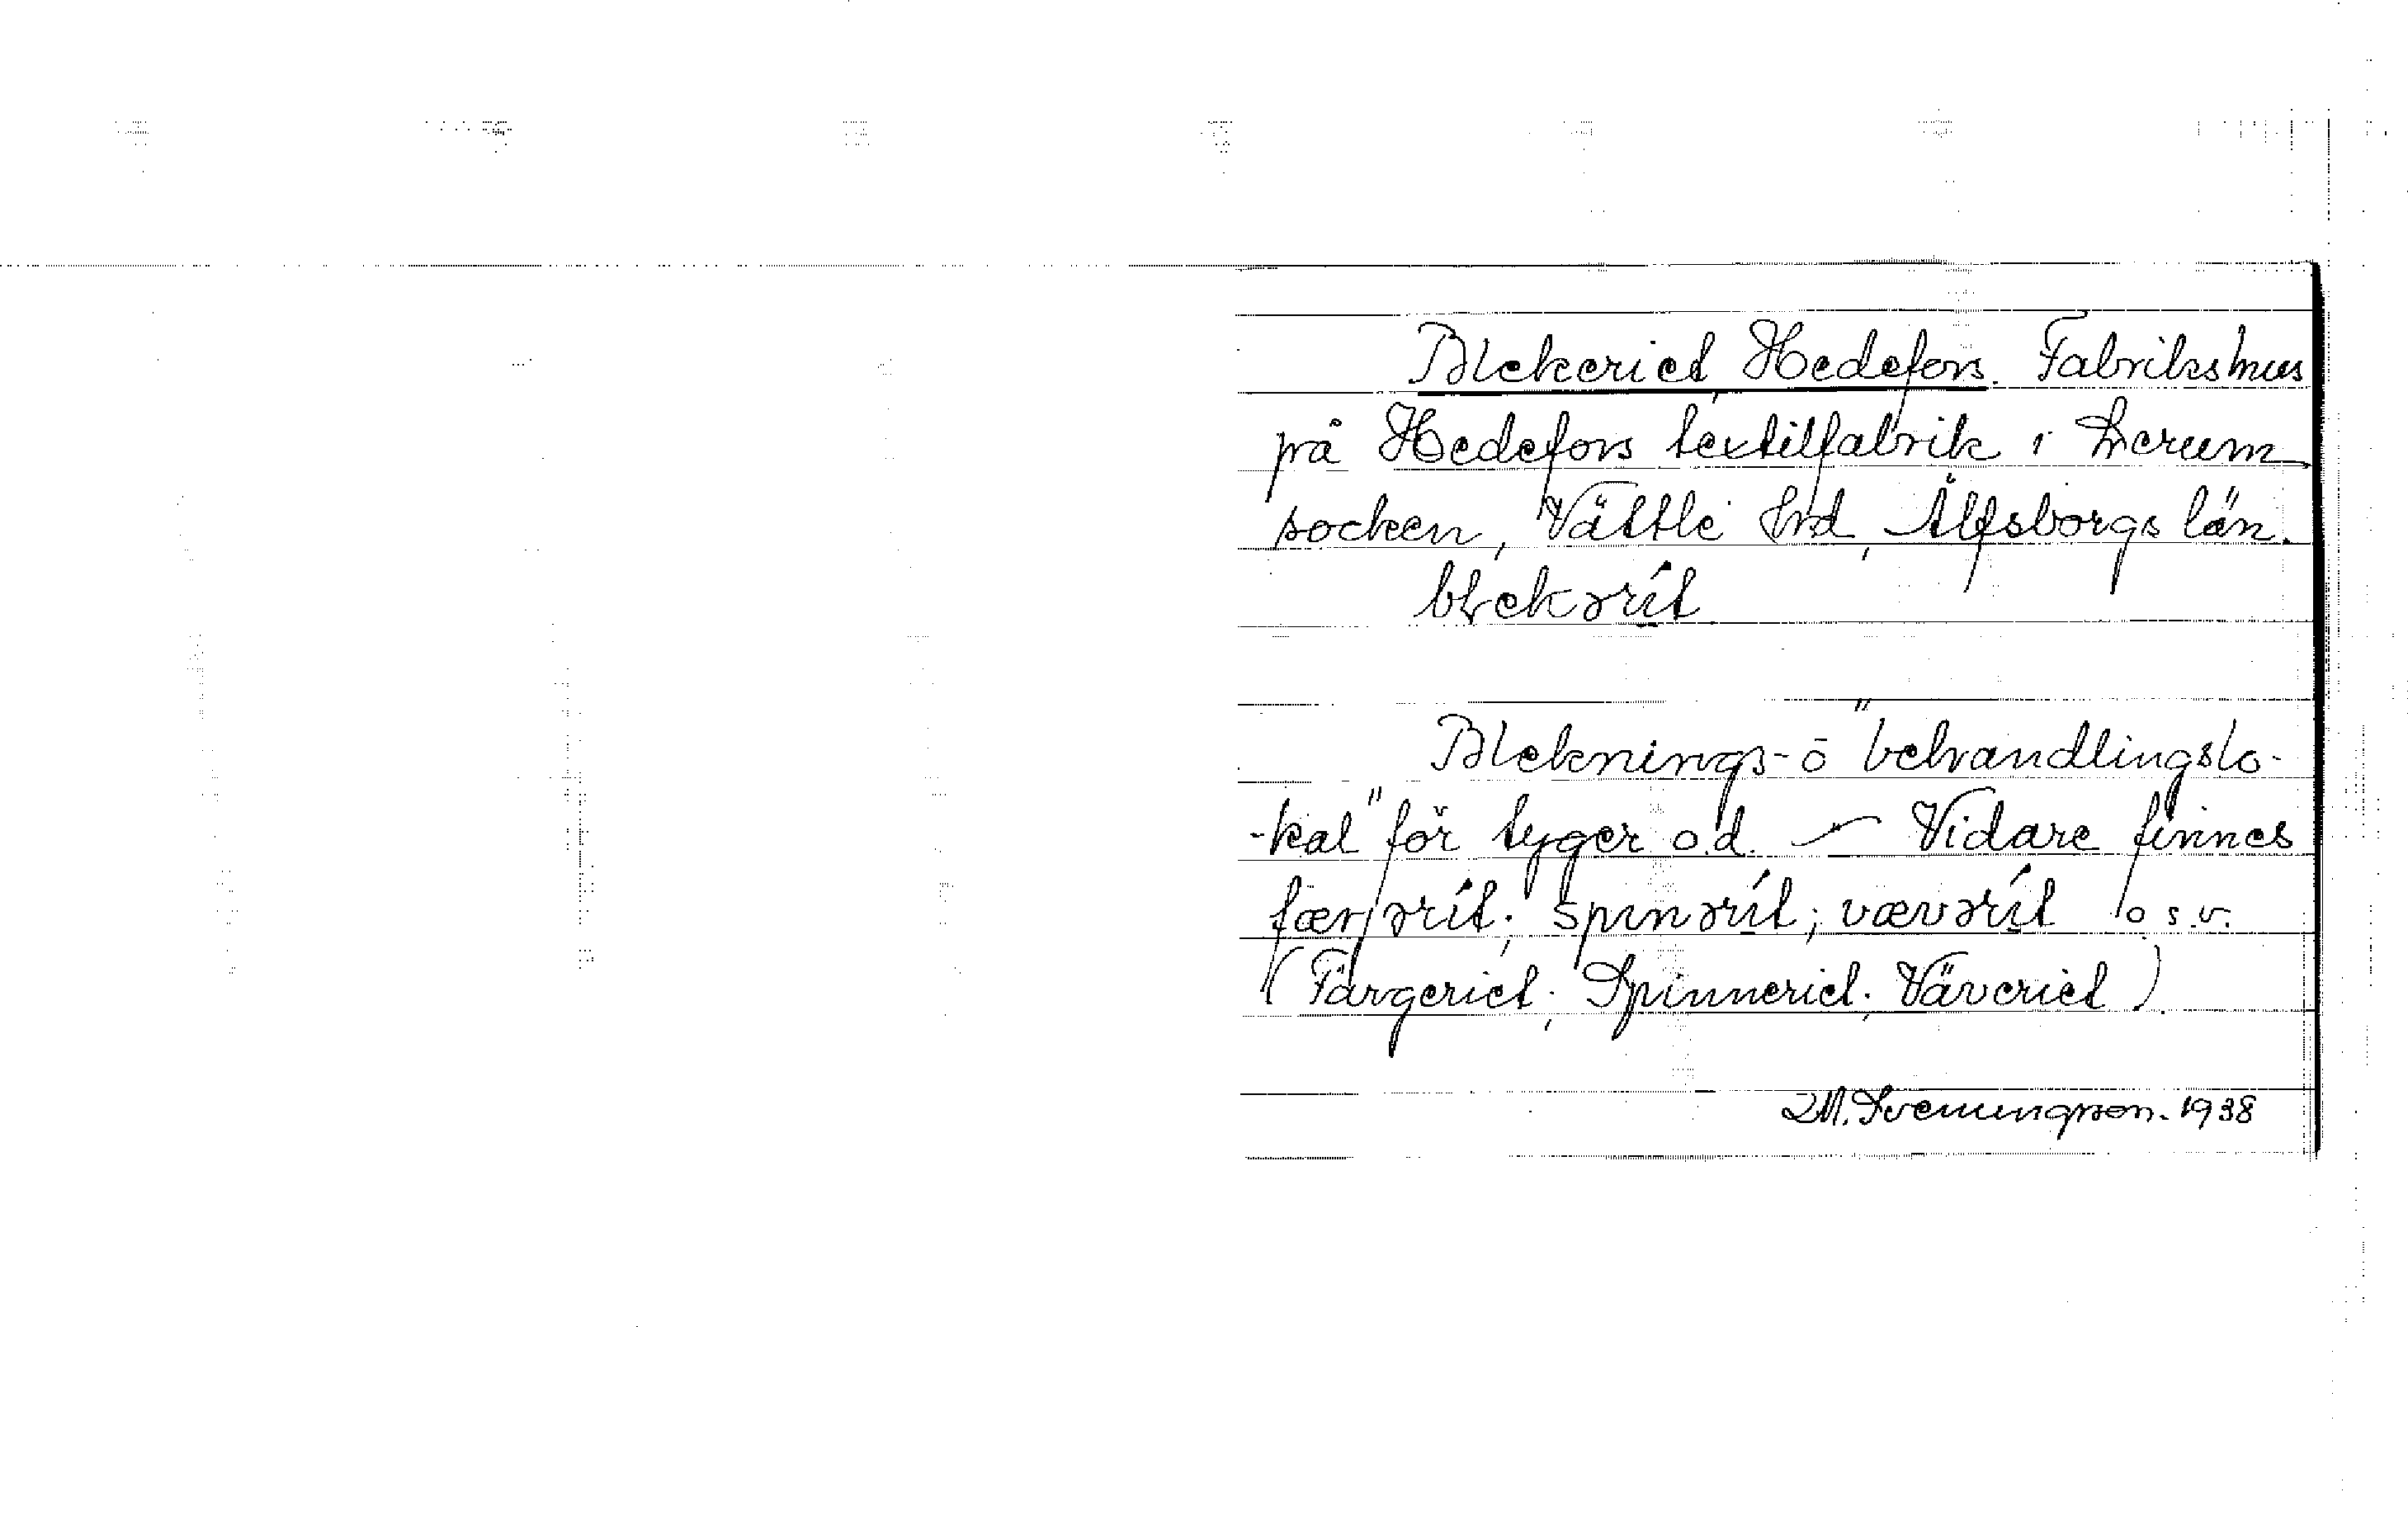 Blekeriet, Hedefors. Fabrikshus
på Hedefors textilfabrik i Lerum
socken, Vättle hrd, Älfsborgs län.
blekərít
Bleknings- o "behandlingslo-
-kal" för tyger o.d. — Vidare finnes
færjərít; spinərít; vævərít o.s.v.
(Färgeriet; Spinneriet; Väveriet).
M. Svenungson. 1938